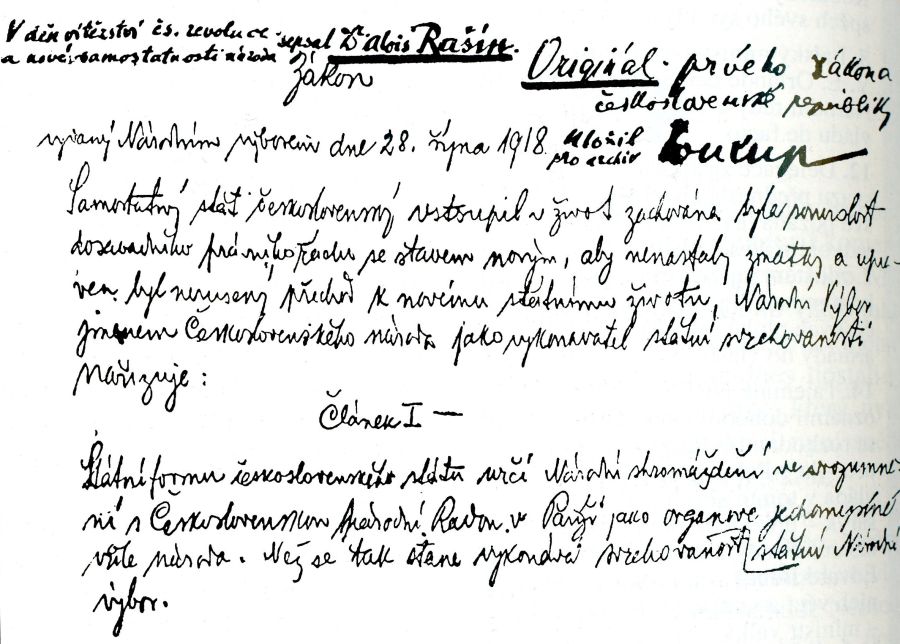 V den vítězství čs. revoluce
a nové samostatnosti národa
sepsal Dr Alois Rašín.
Zákon
Originál prvého zákona
československé republiky
vydaný Národním výborem dne 28. října 1918
Uložil
pro archiv
Soukup
Samostatný stát československý vstoupil v život zachována byla souvislost
dosavadního právního řádu se stavem novým, aby nenastaly zmatky a upra-
ven byl nerušený přechod k novému státnímu životu, Národní Výbor
jménem Československého národa jako vykonavatel státní svrchovanosti
nařizuje:
Článek I —
Státní formu československého státu určí Národní shromáždění ve srozumě-
ní s Československou Národní Radou v Paříži jako orgánové jednomyslné
vůle národa. Než se tak stane vykonává svrchovanost státní Národní
výbor.